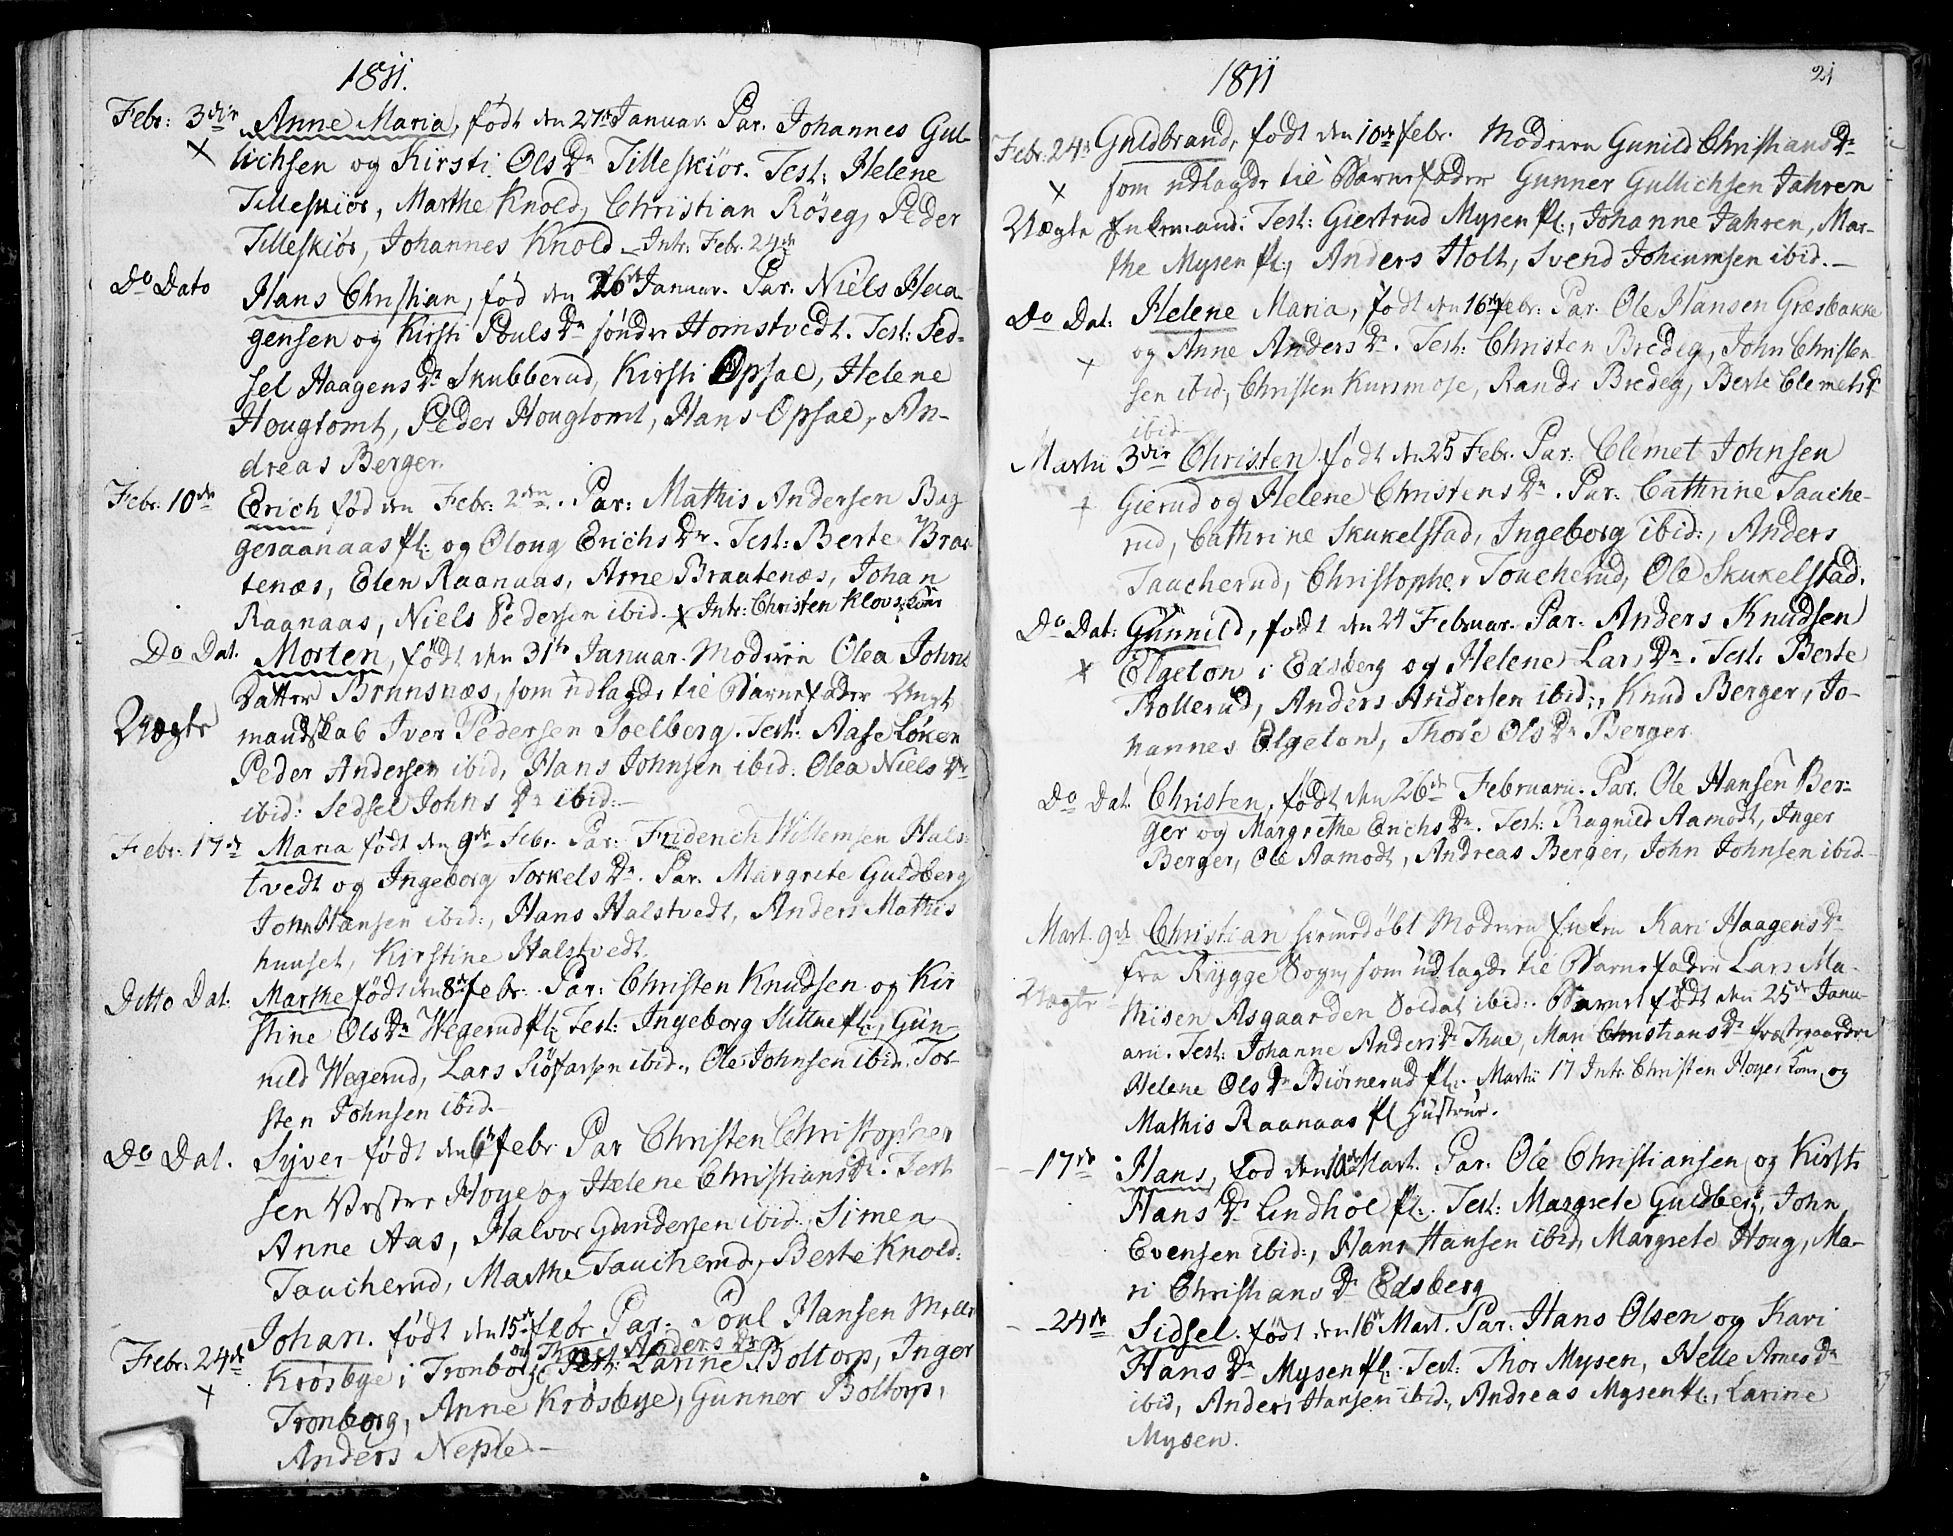 1811.
Febr: 3die Anne Maria, født den 27de Januar. Par. Johannes Gul-
lichsen og Kirsti Ols Dr Tilleskiör. Test: Helene
Tilleskiör, Marthe Knold, Christian Röseg, Peder
Tilleskiör, Johannes Knold - Intr: Febr. 24de
Do Dato Hans Christian, fød den 26de Januar. Par. Niels Haa-
gensen og Kirsti Pouls Dr söndre Homstvedt. Test: Sed-
sel Haagens Dr Skubberud, Kirsti Opsal, Helene
Hougtomt, Peder Hougtomt, Hans Opsal, An-
dreas Berger.
Febr. 10de Erich fød den Febr: 2den. Par: Mathis Andersen Bag
geraanaas pl: og Oloug Erichs Dr. Test: Berte Braa
tenæs, Elen Raanaas, Arne Braatenæs, Johan
Raanaas, Niels Pedersen ibid. x Intr: Christen Klovs Kone
Do Dat. Morten, født den 31te Januar. Moderen Olea Johns
Datter Brunsnæs, som udlagde til Barnefader
Uægte mandskab Iver Pedersen Soelberg. Test: Aase Löken
Peder Andersen ibid, Hans Johnsen ibid: Olea Niels Dr
ibid: Sedsel Johns Dr ibid:-
Febr: 17de Maria født den 9de Febr. Par: Friderich Willemsen Hals-
tvedt og Ingeborg Torkels Dr. Par. Margrete Guldberg
John Hansen ibid:, Hans Halstvedt, Anders Mathis
huuset, Kirstine Halstvedt.
Ditto Dat: Marthe født den 8de febr. Par: Christen Knudsen og Kir
stine Ols Dr Wegerud pl: Test: Ingeborg Slittue pl:, Gun-
nild Wegerud, Lars ibid:, Ole Johnsen ibid. Tor-
sten Johnsen ibid.-
Do Dat. Syver født den 6te febr Par Christen Christopher
sen Vestre Høye og Helene Christians Dr. Test
Anne Aas, Halvor Gundersen ibid:, Simen
Taucherud, Marthe Taucherud, Berte Knold.
Febr: 24de Johan. født den 15de febr Par: Poul Hansen
og Anders Dr
Krösbye i Tronborg Test: Larine Boltorp, Inger
Tronborg, Anne Krosbye, Gunner Boltorp,
Anders Neple.-
1811
21
Febr: 24de Guldbrand, født den 10de febr. Moderen Gunild Christians Dr
som udlagde til Barnefader Gunner Gullichsen Jahren
Uægte Enkemand. Test: Giertrud Mysen pl:, Johanne Jahren, Mar-
the Mysen pl:, Anders Holt, Svend ibid.-
Do Dat: Helene Maria, født den 16de febr: Par. Ole Hansen Græsbakke
og Anne Anders Dr. Test: Christen Bredeg, John Christen-
sen ibid, Christen Kursmose, Randi Bredeg, Berte Clemets Dr
ibid
Martii 3die Christen født den 25 Febr. Par: Clemet Johnsen
Gierud og Helene Christens Dr. Par: Cathrine Tauche-
rud, Cathrine Skukelstad, Ingeborg ibid:, Anders
Taucherud, Christopher Toucherud, Ole Skukelstad.
Do Dat: Gunnild, født den 24 Februar. Par. Anders Knudsen
Elgeton i Edsberg og Helene Lars Dr. Test: Berte
Rollerud, Anders Andersen ibid:, Knud Berger, Jo-
hannes Elgeton, Thore Ols Dr Berger.
Do Dat. Christen, født den 26de Februarii. Par. Ole Hansen Ber-
ger og Margrethe Erichs Dr. Test: Ragnild Aamodt, Inger
Berger, Ole Aamodt, Andreas Berger, John Johnsen ibid-
Mart. 9de Christian hiemedøbt Moderen Enken Kari Haagens Dr
fra Rygge Sogn, som udlagde til Barnefader Lars Ma-
Uægte thisen Asgaarden Soldat ibid:. Barnet født den 25de Janu-
arii. Test: Johanne Anders Dr Thue, Mari Christians Dr Præstegaarden
Helene Ols Dr Biörnerud pl:. Martii 17 Intr: Christen Høyes Kone og
Mathis Raanaas pl Hustrue.
-17de Hans, fød den 10de Mart. Par. Ole Christiansen og Kirsti
Hans Dr Lindhol pl:. Test: Margrete Guldberg, John
Evensen ibid:, Hans Hansen ibid, Margrete Houg, Ma-
ri Christians Dr Edsberg
-24de Sidsel. født den 16de Mart. Par: Hans Olsen og Kari
Hans Dr Mysen pl:. Test: Thor Mysen, Helle Arnes Dr
ibid, Anders Hansen ibid:, Andreas Mysen pl:, Larine
Mysen.